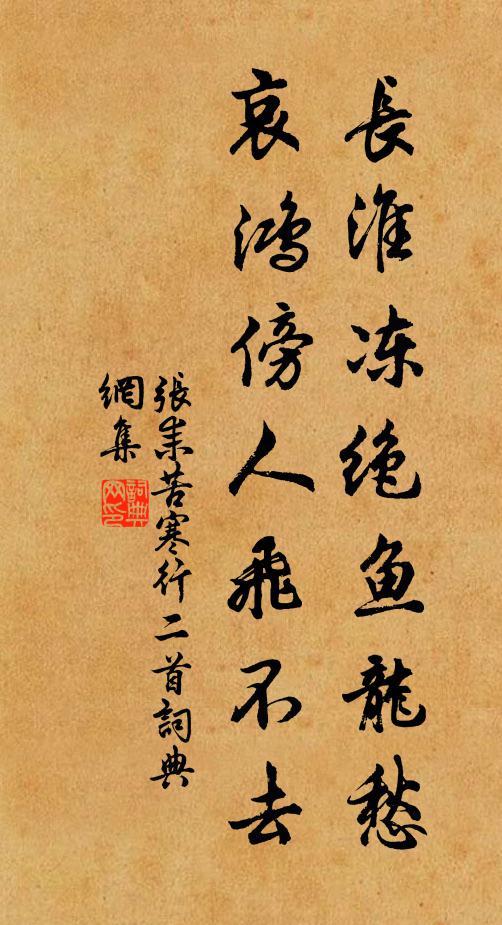 長淮冻绝鱼龍愁
哀鴻傍人飛不去
張耒苦寒行二首詞典
網集
詞典
网印